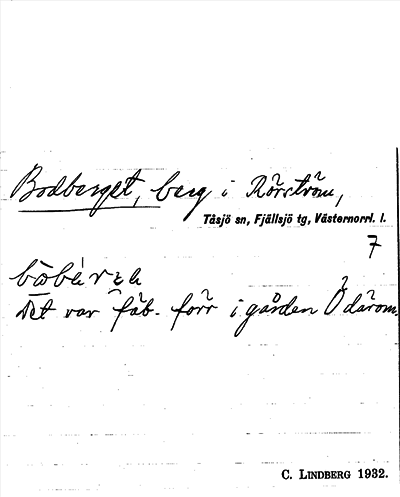 Bodberget, berg i Rörström,
Tåsjö sn, Fjällsjö tg, Västernorrl. l.
7
Det var fäb. förr i gården Ö därom.
C. LINDBERG 1932.